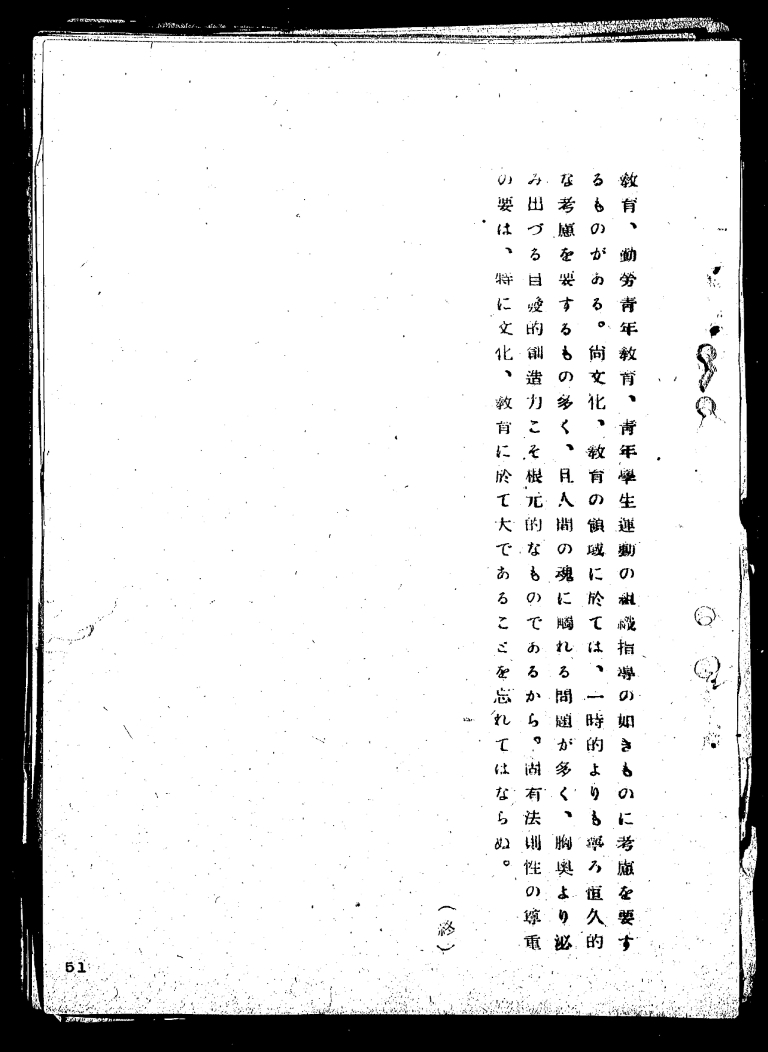 教育、勤勞青年教育、青年學生運動の組織指導の如きものに考慮を要す
るものがある。尚文化、教育の領域に於ては、一時的よりも寧ろ恒久的
な考慮を要するもの多く、且人間の魂に觸れる問題が多く、胸奥より泌
み出づる自發的創造力こそ根元的なものであるから。固有法則性の尊重
の要は、特に文化、教育に於て大であることを忘れてはならぬ。
(終)
51